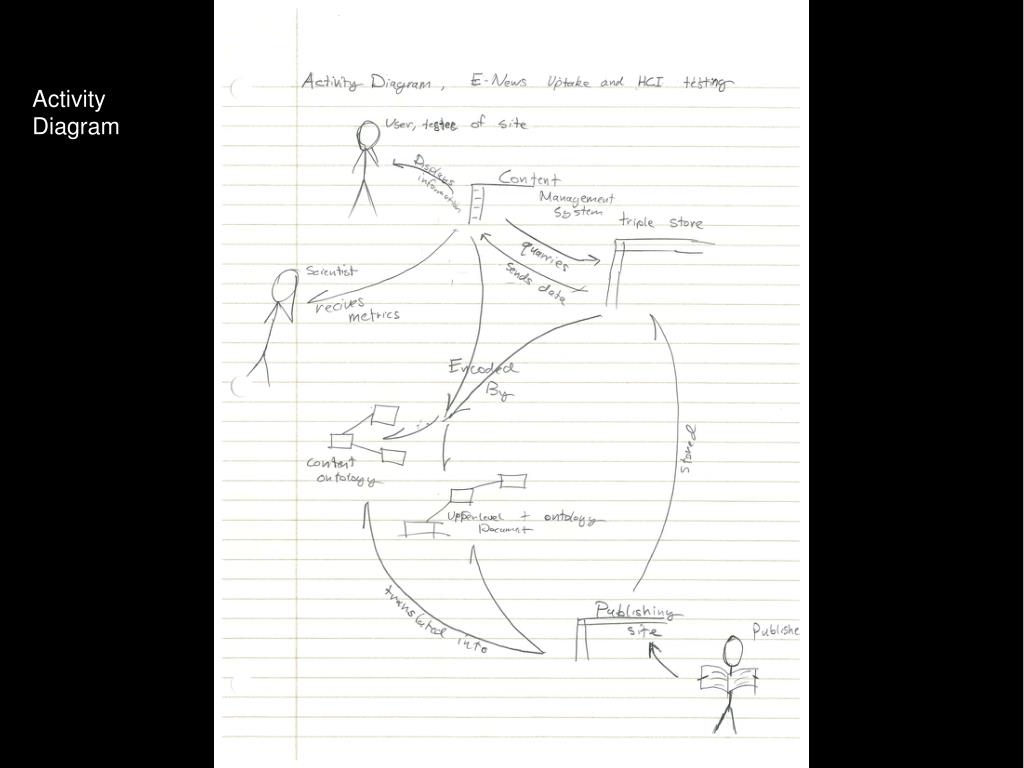 Activity
Diagram
Activity Diagram, E-News Uptake and HCI testing
User, testee of site
Displays
information
Content
Management
System
triple store
quarries
sends data
Scientist
recives
metrics
Encoded
By
stored
content
ontology
Upper level + ontology
Document
translated into
Publishing
site
Publishe